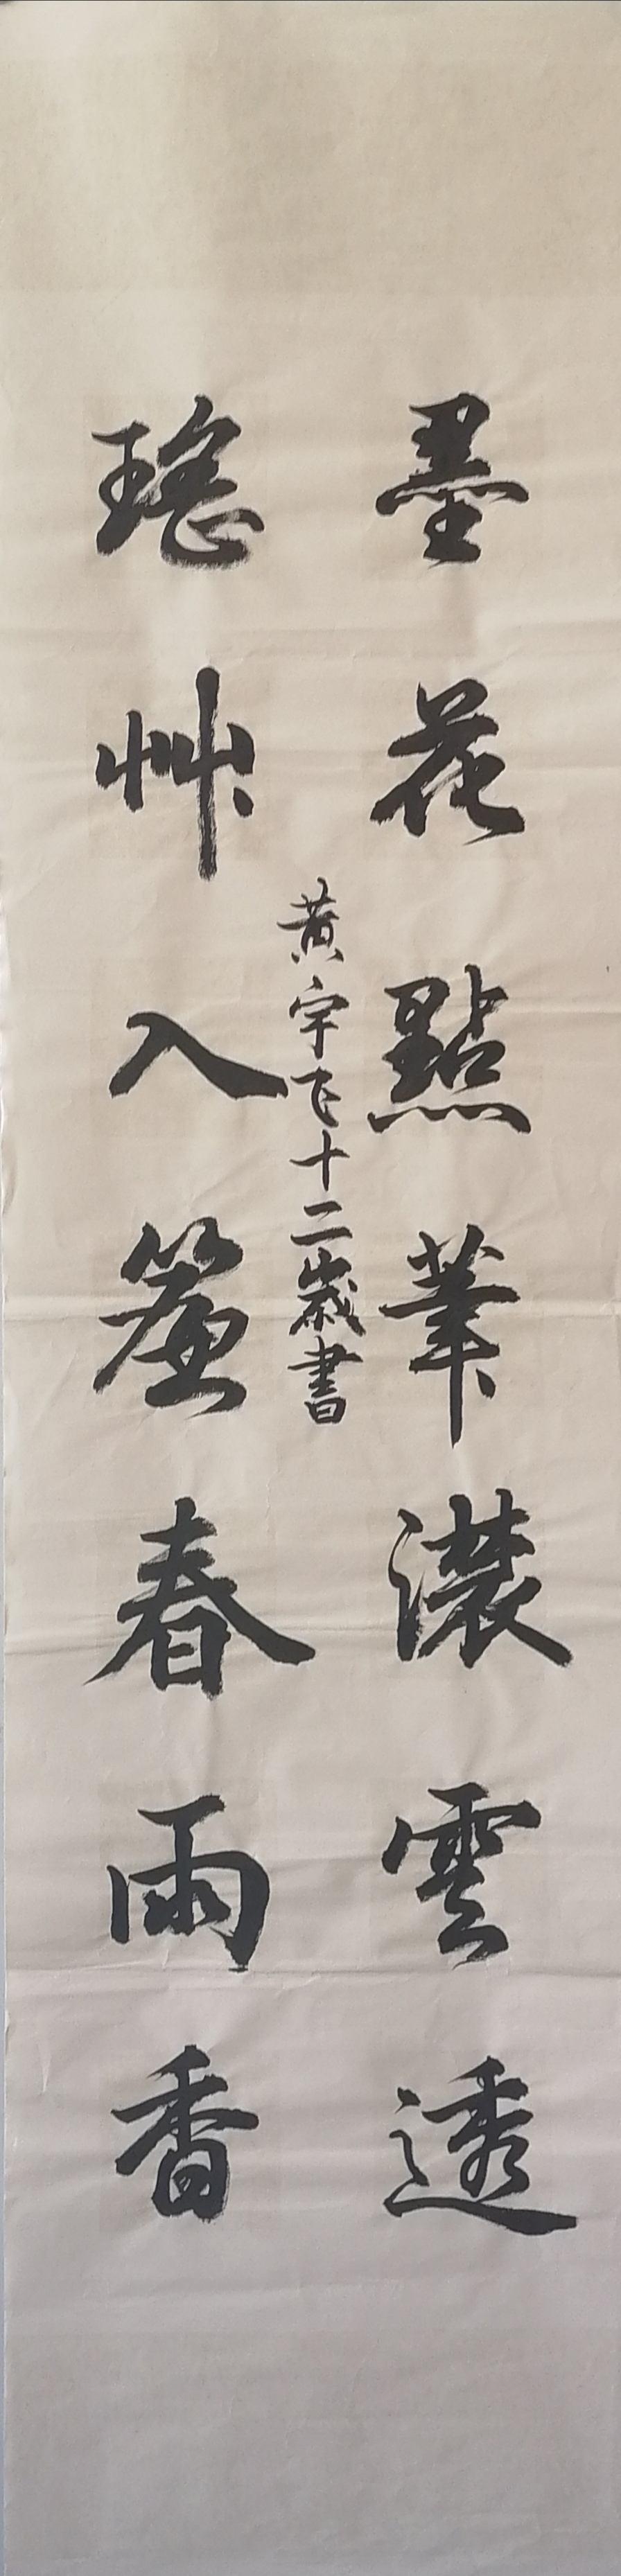 墨花點筆濃雲透
瑤艸入簾春雨香
黃宇飞十二歲書